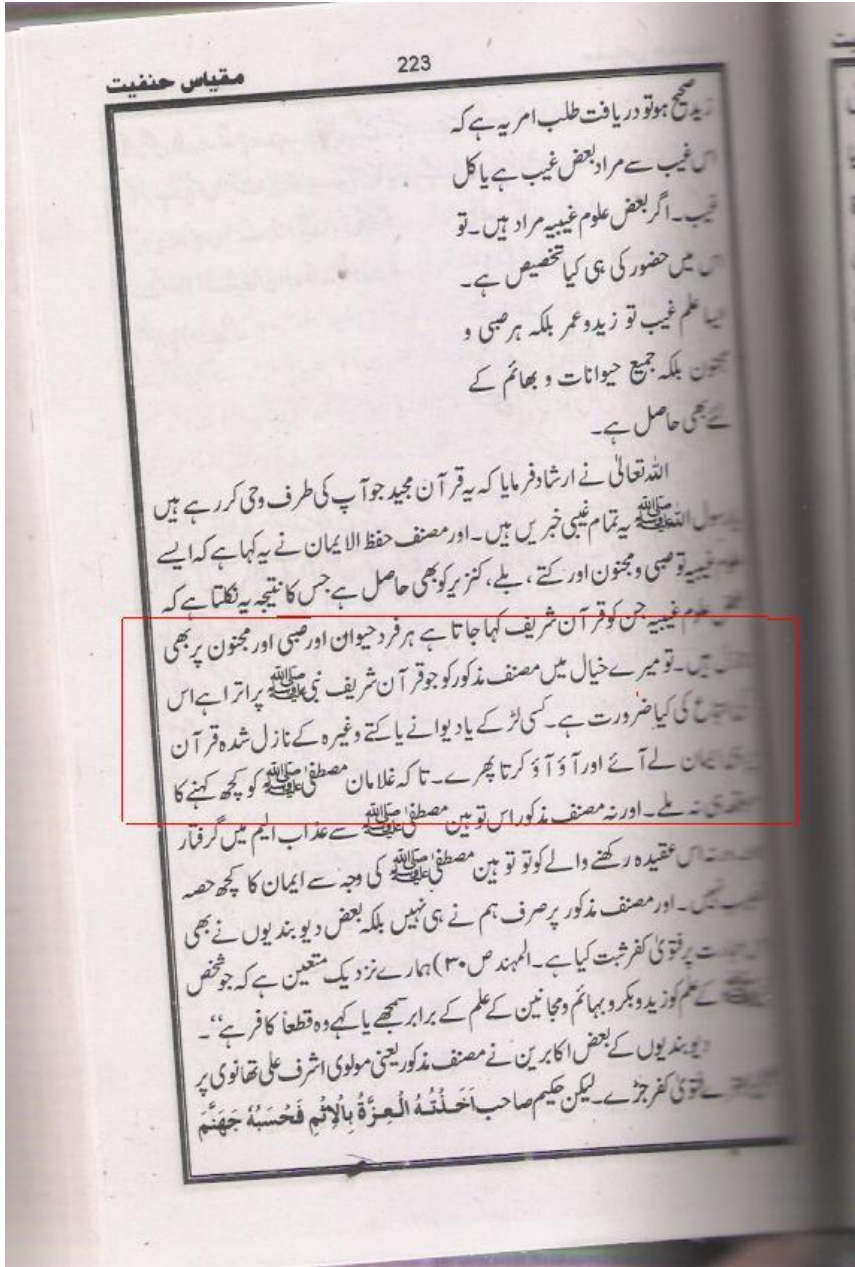 مقیاس حنفیت
223
زید صحیح ہو تو دریافت طلب امر یہ ہے کہ
اس غیب سے مراد بعض غیب ہے یا کل
غیب۔ اگر بعض علوم غیبیہ مراد ہیں۔ تو
اس میں حضور کی ہی کیا تخصیص ہے۔
ایسا علم غیب تو زید و عمر بلکہ ہر صبی و
مجنون بلکہ جمیع حیوانات و بھائم کے
لئے بھی حاصل ہے۔
اللہ تعالیٰ نے ارشاد فرمایا کہ یہ قرآن مجید جو آپ کی طرف وحی کر رہے ہیں
رسول اللہ ﷺ یہ تمام غیبی خبریں ہیں۔ اور مصنف حفظ الایمان نے یہ کہا ہے کہ ایسے
علوم غیبیہ تو صبی و مجنون اور کتے، بلے، کنزیر کو بھی حاصل ہے جس کا نتیجہ یہ نکلتا ہے کہ
بعض علوم غیبیہ جن کو قرآن شریف کہا جاتا ہے ہر فرد حیوان اور صبی اور مجنون پر بھی
ہیں۔ تو میرے خیال میں مصنف مذکور کو جو قرآن شریف نبی ﷺ پر اترا ہے اس
کی اتباع کی کیا ضرورت ہے۔ کسی لڑکے یا دیوانے یا کتے وغیرہ کے نازل شدہ قرآن
ایمان لے آئے اور آؤ آؤ کرتا پھرے۔ تا کہ غلامان مصطفیٰ ﷺ کو کچھ کہنے کا
موقعہ ہی نہ ملے۔ اور نہ مصنف مذکور اس توہین مصطفیٰ ﷺ سے عذاب الیم میں گرفتار
ورنہ اس عقیدہ رکھنے والے کو تو توہین مصطفیٰ ﷺ کی وجہ سے ایمان کا کچھ حصہ
نصیب نہیں۔ اور مصنف مذکور پر صرف ہم نے ہی نہیں بلکہ بعض دیوبندیوں نے بھی
اس عبارت پر فتویٰ کفر ثبت کیا ہے۔ المہند ص ۳۰) ہمارے نزدیک متعین ہے کہ جو شخص
ﷺ کے علم کو زید و بکر و بہائم و مجانین کے علم کے برابر سمجھے یا کہے وہ قطعاً کافر ہے‘‘۔
دیوبندیوں کے بعض اکابرین نے مصنف مذکور یعنی مولوی اشرف علی تھانوی پر
فتویٰ کفر جڑے۔ لیکن حکیم صاحب اَخَذَتْهُ الْعِزَّةُ بِالْاِثْمِ فَحَسْبُهٗ جَهَنَّمَ